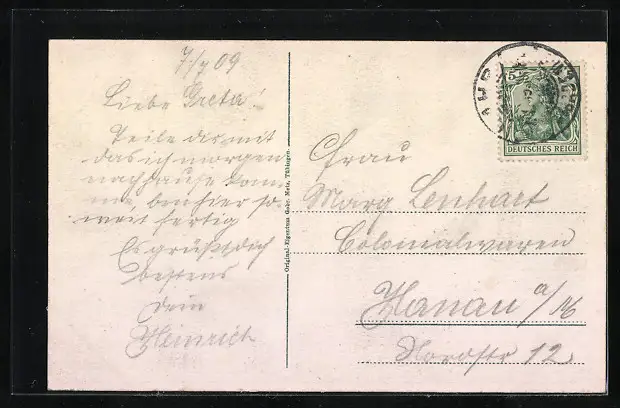 7/7 09
Liebe Greta!
Teile dir mit
das ich morgen
nachhause kom-
me, bin hier so-
weit fertig
Es grüßt dich
bestens
dein
Heinrich
Original-Eigentum Gebr. Metz, Tübingen.
5
DEUTSCHES REICH
Frau
Marg Lenhart
Colonialwaren
Hanau a/M
Nordstr 12